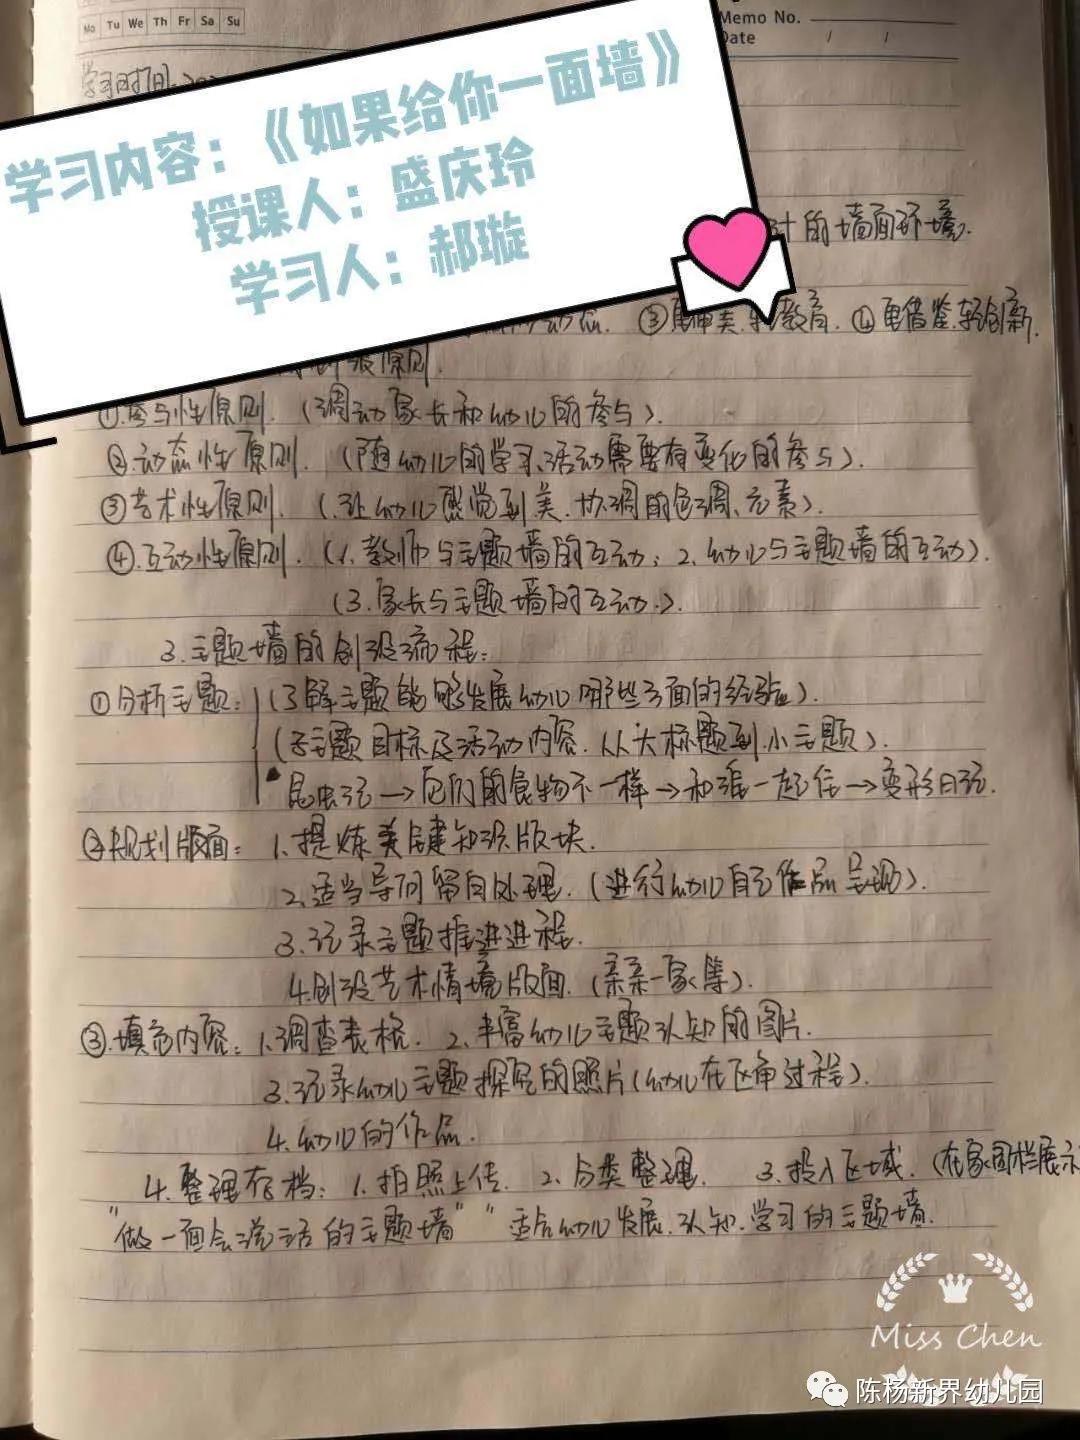 Mo Tu We Th Fr Sa Su
Memo No.
Date / /
学习时间:
学习内容：《如果给你一面墙》
授课人：盛庆玲
学习人：郝璇
计的墙面环境.
③重审美.轻教育. ④重借鉴.轻创新.
原则.
①.参与性原则. (调动家长和幼儿的参与).
②.动态性原则. (随幼儿的学习、活动需要有变化的参与).
③艺术性原则. (让幼儿感觉到美.协调的色调、元素).
④.互动性原则. (1.教师与主题墙的互动; 2.幼儿与主题墙的互动).
(3.家长与主题墙的互动.).
3.主题墙的创设流程:
①分析主题: (了解主题能够发展幼儿哪些方面的经验).
(子主题目标及活动内容.从大标题到小主题).
昆虫记→它们的食物不一样→和谁一起住→变形日记.
②规划版面: 1.提炼关键知识版块.
2.适当导问留白处理. (进行幼儿自己作品呈现).
3.记录主题推进进程.
4.创设艺术情境版面. (亲亲一家等).
③.填充内容: 1.调查表格. 2.丰富幼儿主题认知的图片.
3.记录幼儿主题探究的照片(幼儿在区角过程).
4.幼儿的作品.
4.整理存档: 1.拍照上传. 2.分类整理. 3.投入区域. (在家园栏展示
"做一面会说话的主题墙" "适合幼儿发展.认知.学习的主题墙.
Miss Chen
陈杨新界幼儿园